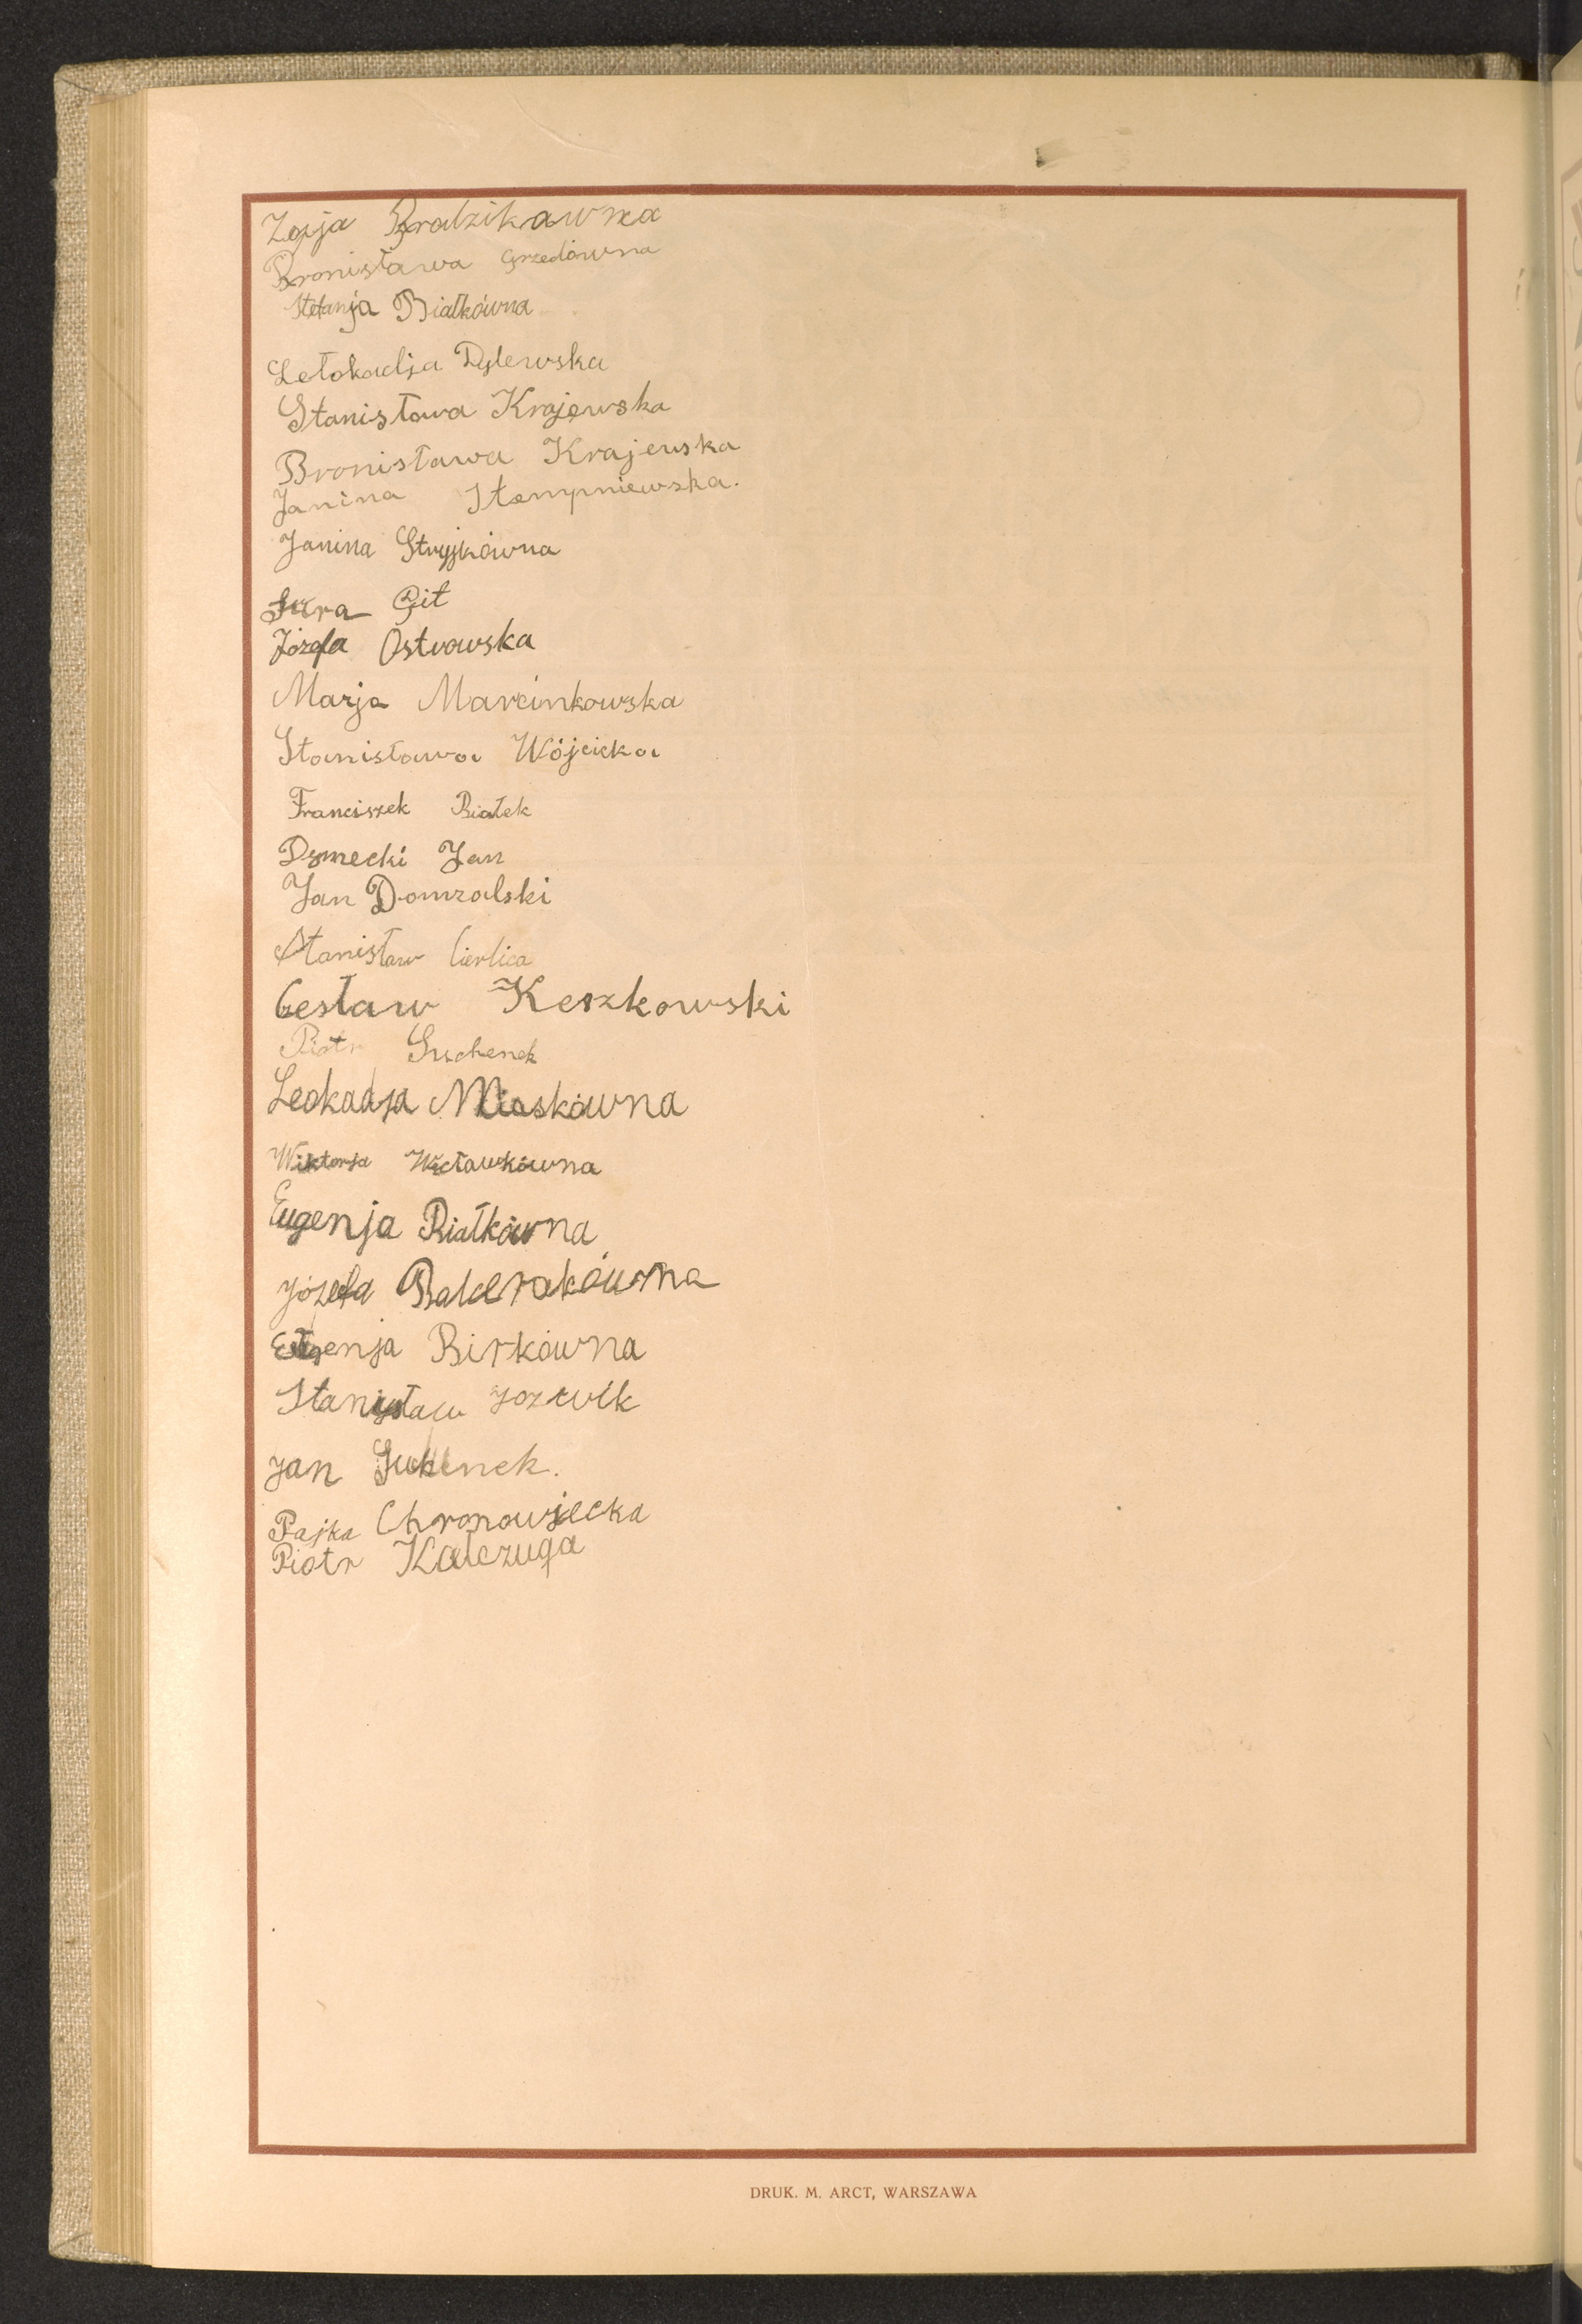 Zofja Bralzikawna
Bronisława Grzedówna
Stefanja Białkówna
Letokadja Dylewska
Stanisława Krajewska
Bronisława Krajewska
Janina Stempniewska.
Janina Stryjkówna
Sura Git
Józefa Ostrowska
Marja Marcinkowska
Stanisława Wójcicka
Franciszek Białek
Dymecki Jan
Jan Domzalski
Stanisław Cierlica
Cesław Keszkowski
Piotr Suchenek
Leokadja Miaskówna
Wiktorja Wecławkówna
Eugenja Białkówna
Józefa Balcerakówna
Eugenja Birkówna
Stanisław Jozwik
Jan Suhenek.
Pajka Chronowjecka
Piotr Kałczuga
DRUK. M. ARCT, WARSZAWA